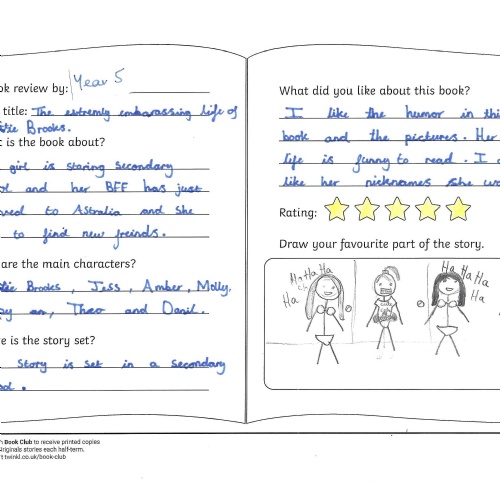 ok review by: Year 5
title: The extremly embarassing life of
tie Brooks.
t is the book about?
girl is staring secondary
ol and her BFF has just
ved to Astralia and she
to find new freinds.
are the main characters?
tie Brooks, Jess, Amber, Molly,
py an, Theo and Danil.
e is the story set?
Story is set in a secondary
ol.
n Book Club to receive printed copies
Originals stories each half-term.
t twinkl.co.uk/book-club
What did you like about this book?
I like the humor in thi
book and the pictures. Her
life is funny to read. I a
like her nicknames she wa
Rating:
Draw your favourite part of the story.
Ha Ha Ha
Ha
Ha Ha
Ha
Ha